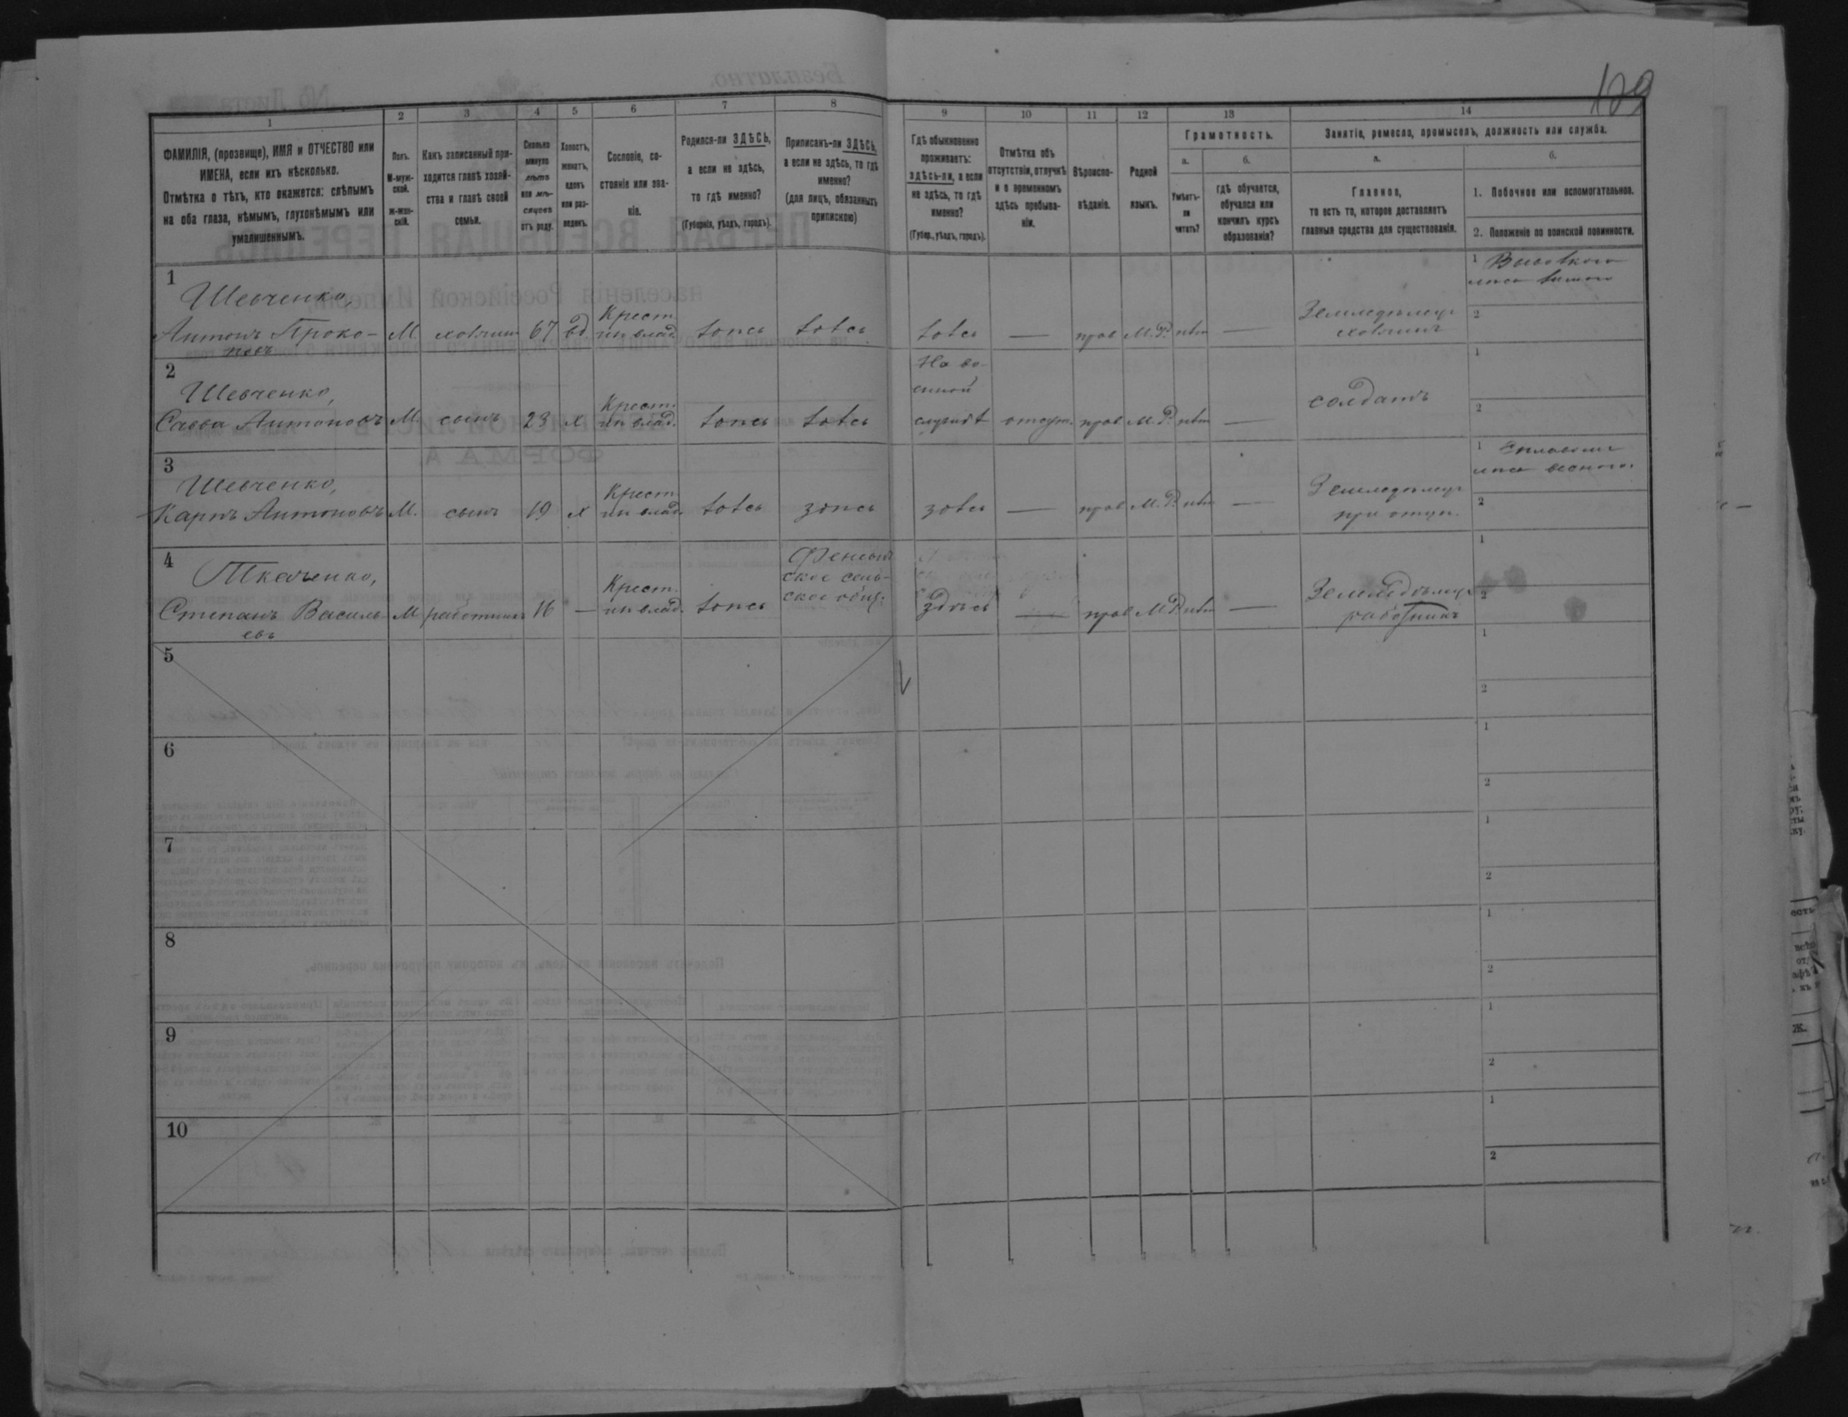 129
1 2 3 4 5 6 7 8 9 10 11 12 13 14
ФАМИЛІЯ, (прозвище), ИМЯ и ОТЧЕСТВО или
ИМЕНА, если ихъ нѣсколько.
Отмѣтка о тѣхъ, кто окажется: слѣпымъ
на оба глаза, нѣмымъ, глухонѣмымъ или
умалишеннымъ.
Полъ.
М-муж-
ской.
Ж-жен-
скій.
Какъ записанный при-
ходится главѣ хозяй-
ства и главѣ своей
семьи.
Сколько
минуло
лѣтъ
или мѣ-
сяцевъ
отъ роду.
Холостъ,
женатъ,
вдовъ
или раз-
веденъ.
Сословіе, со-
стояніе или зва-
ніе.
Родился-ли ЗДѢСЬ,
а если не здѣсь,
то гдѣ именно?
(Губернія, уѣздъ, городъ).
Приписанъ-ли ЗДѢСЬ,
а если не здѣсь, то гдѣ
именно?
(для лицъ, обязанныхъ
припискою)
Гдѣ обыкновенно
проживаетъ:
здѣсь-ли, а если
не здѣсь, то гдѣ
именно?
(Губер., уѣздъ, городъ).
Отмѣтка объ
отсутствіи, отлучкѣ
и о временномъ
здѣсь пребыва-
ніи.
Вѣроиспо-
вѣданіе.
Родной
языкъ.
Грамотность.
а.
Умѣетъ-
ли
читать?
б.
гдѣ обучается,
обучался или
кончилъ курсъ
образованія?
Занятіе, ремесло, промыселъ, должность или служба.
а.
Главное,
то есть то, которое доставляетъ
главныя средства для существованія.
б.
1. Побочное или вспомогательное.
2. Положеніе по воинской повинности.
1
Шевченко,
Антонъ Проко-
М хозяинъ 67 вд
Крест.
здѣсь здѣсь здѣсь — прав М.Р. нѣт —
Земледѣлецъ
хозяинъ
1
2
2
Шевченко,
Савва Антоновъ М. сынъ 23 х
Крест.
здѣсь здѣсь
На во-
енной
службѣ отсут. прав М.Р. нѣт —
солдатъ
1
2
3
Шевченко,
Карпъ Антоновъ М. сынъ 19 х
Крест.
здѣсь здѣсь здѣсь — прав М.Р. нѣт —
Земледѣлецъ
при отцѣ.
1
2
4
Ткаченко,
Степанъ Василь-
евъ
М работникъ 16 —
Крест.
здѣсь
ское сель-
ское общ.
здѣсь — прав М.Р. нѣт —
Земледѣлецъ
работникъ
1
2
5
1
2
6
1
2
7
1
2
8
1
2
9
1
2
10
1
2